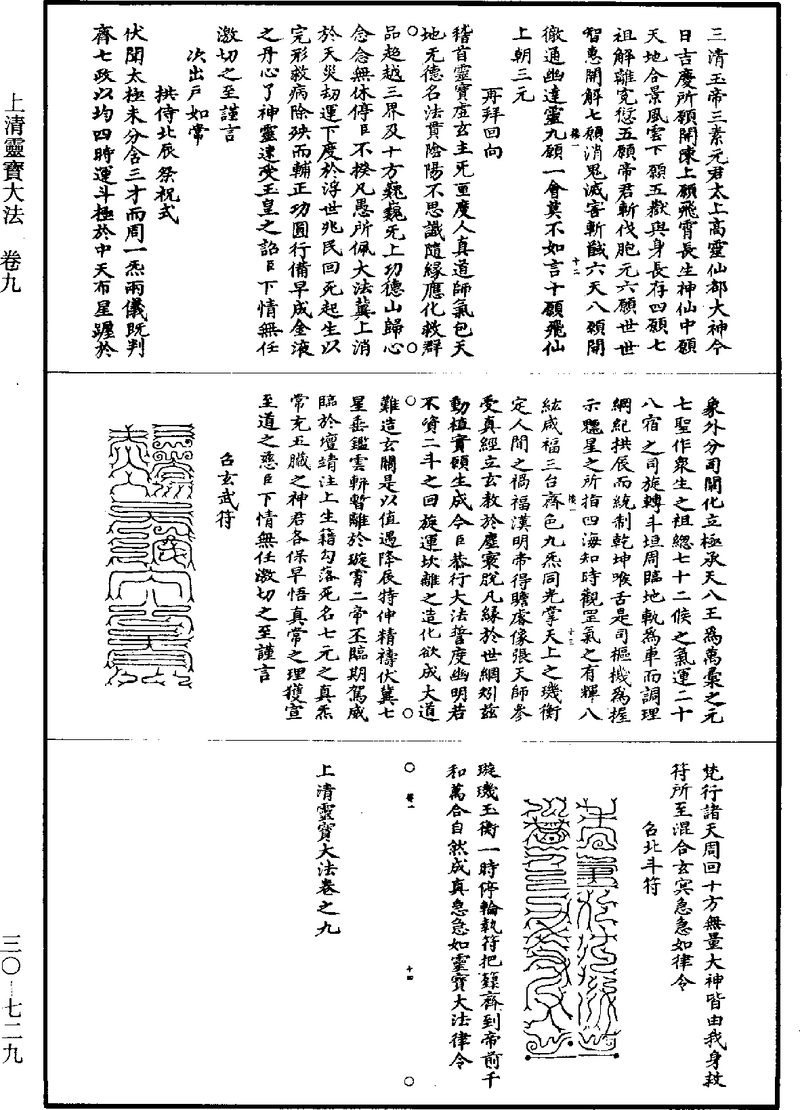 上清靈寶大法　卷九
三〇—七二九
三清玉帝三素元君太上高靈仙都大神今
日吉慶所願開陳上願飛霄長生神仙中願
天地合景風雲下願五嶽與身長存四願七
祖解離寃愆五願帝君斬伐胞元六願世世
智惠開解七願消鬼滅害斬馘六天八願開
徹通幽達靈九願一會莫不如言十願飛仙
上朝三元
再拜回向
稽首靈寶虛玄主旡亜度人真道師氣包天
地无德名法貫陰陽不思議隨緣應化救群
品超越三界及十方巍巍旡上功德山歸心
念念無休停臣不揆凡愚所佩大法冀上消
於天災劫運下度於浮世兆民回死起生以
完形救病除殃而輔正功圓行備早成金液
之丹心了神靈速受玉皇之詔臣下情無任
激切之至謹言
次出戶如常
拱侍北辰祭祝式
伏聞太極未分含三才而周一炁兩儀既判
齊七政以均四時運斗極於中天布星躔於
象外分司開化立極承天八王為萬彙之元
七聖作衆生之祖緫七十二候之氣運二十
八宿之司旋轉斗垣周臨地軌為車而調理
綱紀拱辰而統制乾坤喉舌是司樞機為握
示躔星之所指四海知時觀罡氣之有輝八
紘咸福三台齊色九炁同光掌天上之璣衡
定人間之禍福漢明帝得瞻處像張天師參
受真經立玄教於塵寰脫凡緣於世網矧茲
動植實頼生成今臣恭行大法普度幽明若
不資二斗之回旋運坎離之造化欲成大道
難造玄關是以值遇降辰特伸精禱伏冀七
星垂鑑雲軿暫離於璇霄二帝丕臨期駕咸
臨於壇靖注上生籍勾落死名七元之真炁
常充五臟之神君各保早悟真常之理獲宣
至道之慈臣下情無任激切之至謹言
召玄武符
梵行諸天周回十方無量大神皆由我身救
符所至混合玄冥急急如律令
召北斗符
璇璣玉衡一時停輪執符把籙齊到帝前千
和萬合自然成真急急如靈寶大法律令
十四
上清靈寶大法卷之九